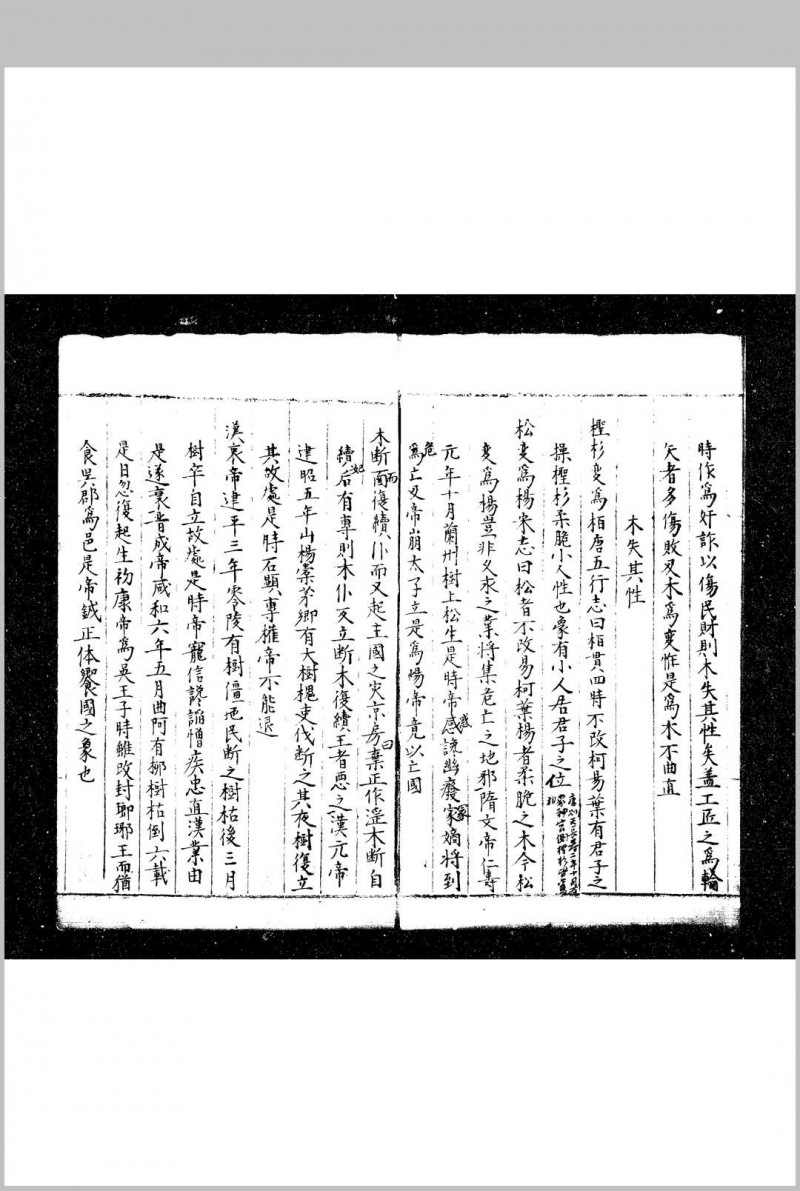 時作爲奸詐以傷民財則木失其性矣盖工匠之爲輪
矢者多傷敗又木爲変恠是爲木不曲直
木失其性
檉杉变爲柏唐五行志曰栢貫四時不改柯易葉有君子之
操檉杉柔脆小人性也象有小人居君子之位
松变爲楊宋志曰松者不改易柯葉楊者柔脆之木今松
变爲楊豈非乆求之業將集危亡之地邪隋文帝仁寿
元年十月蘭州樹上松生是時帝惑讒幽廢冢嫡將到
危亡及帝崩太子立是爲煬帝竟以亡國
木断而復續仆而又起主國之灾京房曰棄正作滛木断自
續妃后有専則木仆反立断木復續王者悪之漢元帝
建昭五年山楊槖茅郷有大樹槐吏伐断之其夜樹復立
其故處是時石顕専權帝不能退
漢哀帝建平三年零陵有樹僵地民断之樹枯後三月
樹卒自立故處是時帝寵信讒謟憎疾忠直漢業由
是遂衰晋成帝咸和六年五月曲阿有栁樹枯倒六載
是日忽復起生初康帝爲吳王子時雖改封瑯琊王而猶
食吳郡爲邑是帝鉞正体饗國之象也